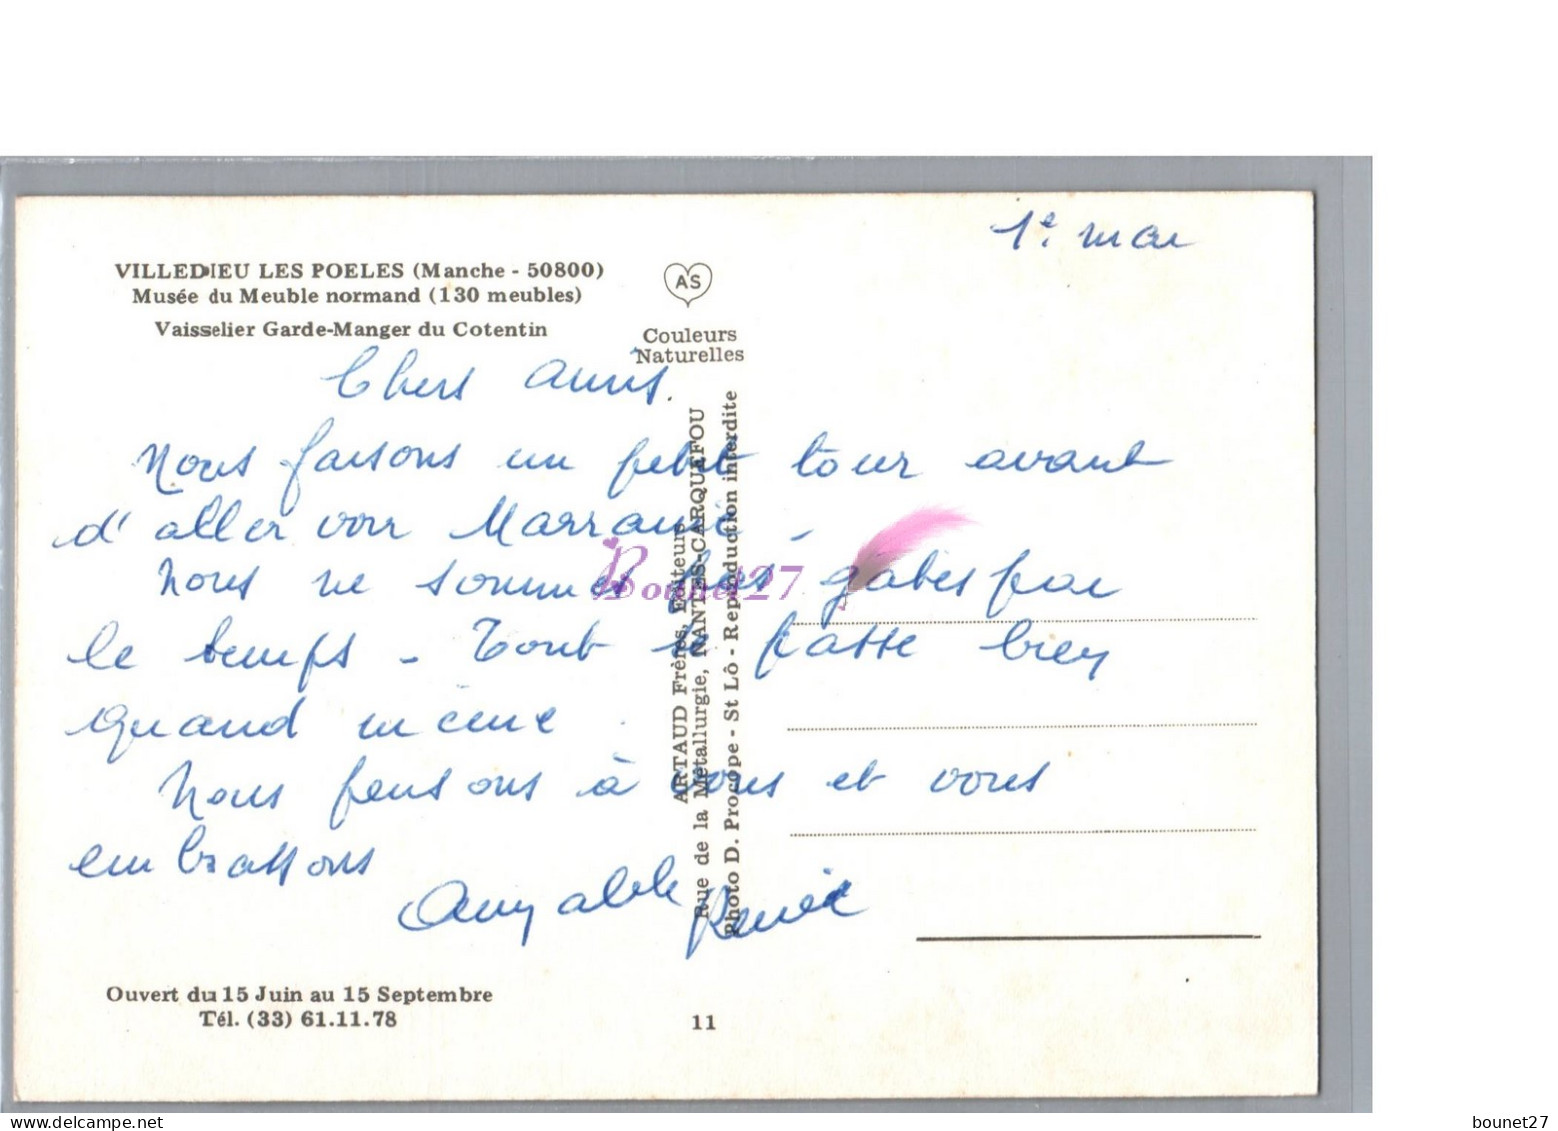 1e. mai
VILLEDIEU LES POELES (Manche - 50800)
Musée du Meuble normand (130 meubles)
Vaisselier Garde-Manger du Cotentin
AS
Couleurs
Naturelles
Chers Amis.
Nous faisons un petit tour avant
d'aller voir Marraine -
Nous ne sommes pas gâtés par
le temps - Tout se passe bien
quand même.
Nous pensons à vous et vous
embrassons
Renée
ARTAUD Frères, Editeurs
Rue de la Métallurgie, NANTES-CARQUEFOU
Photo D. Procope - St Lô - Reproduction interdite
Bounet27
Ouvert du 15 Juin au 15 Septembre
Tél. (33) 61.11.78
11
bounet27